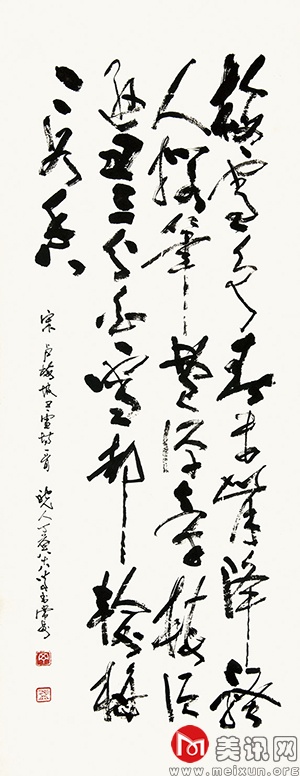 梅雪争春未肯降骚
人搁笔费评章梅须
逊雪三分白雪却输梅
一段香
宋卢梅坡
晓人
美讯网
www.meixun.org